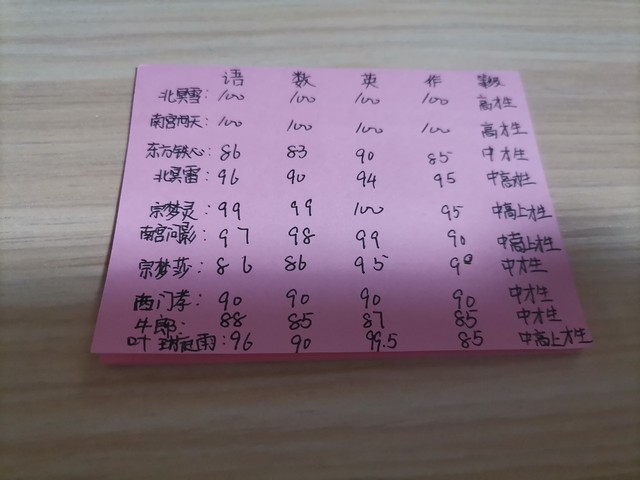 语 数 英 作 等级
北冥雪: 100 100 100 100 高才生
南宫问天: 100 100 100 100 高才生
东方铁心: 86 83 90 85 中才生
北冥雷: 96 90 94 95 中高才生
宗梦灵: 99 99 100 95 中高上才生
南宫问影: 97 98 99 90 中高上才生
宗梦莎: 86 86 95 90 中才生
西门孝: 90 90 90 90 中才生
牛郎: 88 85 87 85 中才生
叶 雨: 96 90 99.5 85 中高上才生